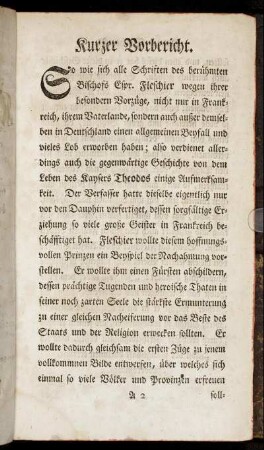 Kurzer Vorbericht.
So wie sich alle Schriften des berühmten
Bischofs Espr. Fleschier wegen ihrer
besondern Vorzüge, nicht nur in Frank-
reich, ihrem Vaterlande, sondern auch außer demsel-
ben in Deutschland einen allgemeinen Beyfall und
vieles Lob erworben haben; also verdienet aller-
dings auch die gegenwärtige Geschichte von dem
Leben des Kaysers Theodos einige Aufmerksam-
keit. Der Verfasser hatte dieselbe eigentlich nur
vor den Dauphin verfertiget, dessen sorgfältige Er-
ziehung so viele große Geister in Frankreich be-
schäfftiget hat. Fleschier wollte diesem hoffnungs-
vollen Prinzen ein Beyspiel der Nachahmung vor-
stellen. Er wollte ihm einen Fürsten abschildern,
dessen prächtige Tugenden und heroische Thaten in
seiner noch zarten Seele die stärkste Ermunterung
zu einer gleichen Nacheiferung vor das Beste des
Staats und der Religion erwecken sollten. Er
wollte dadurch gleichsam die ersten Züge zu jenem
vollkommnen Bilde entwerfen, über welches sich
einmal so viele Völker und Provinzen erfreuen
A 2 soll-